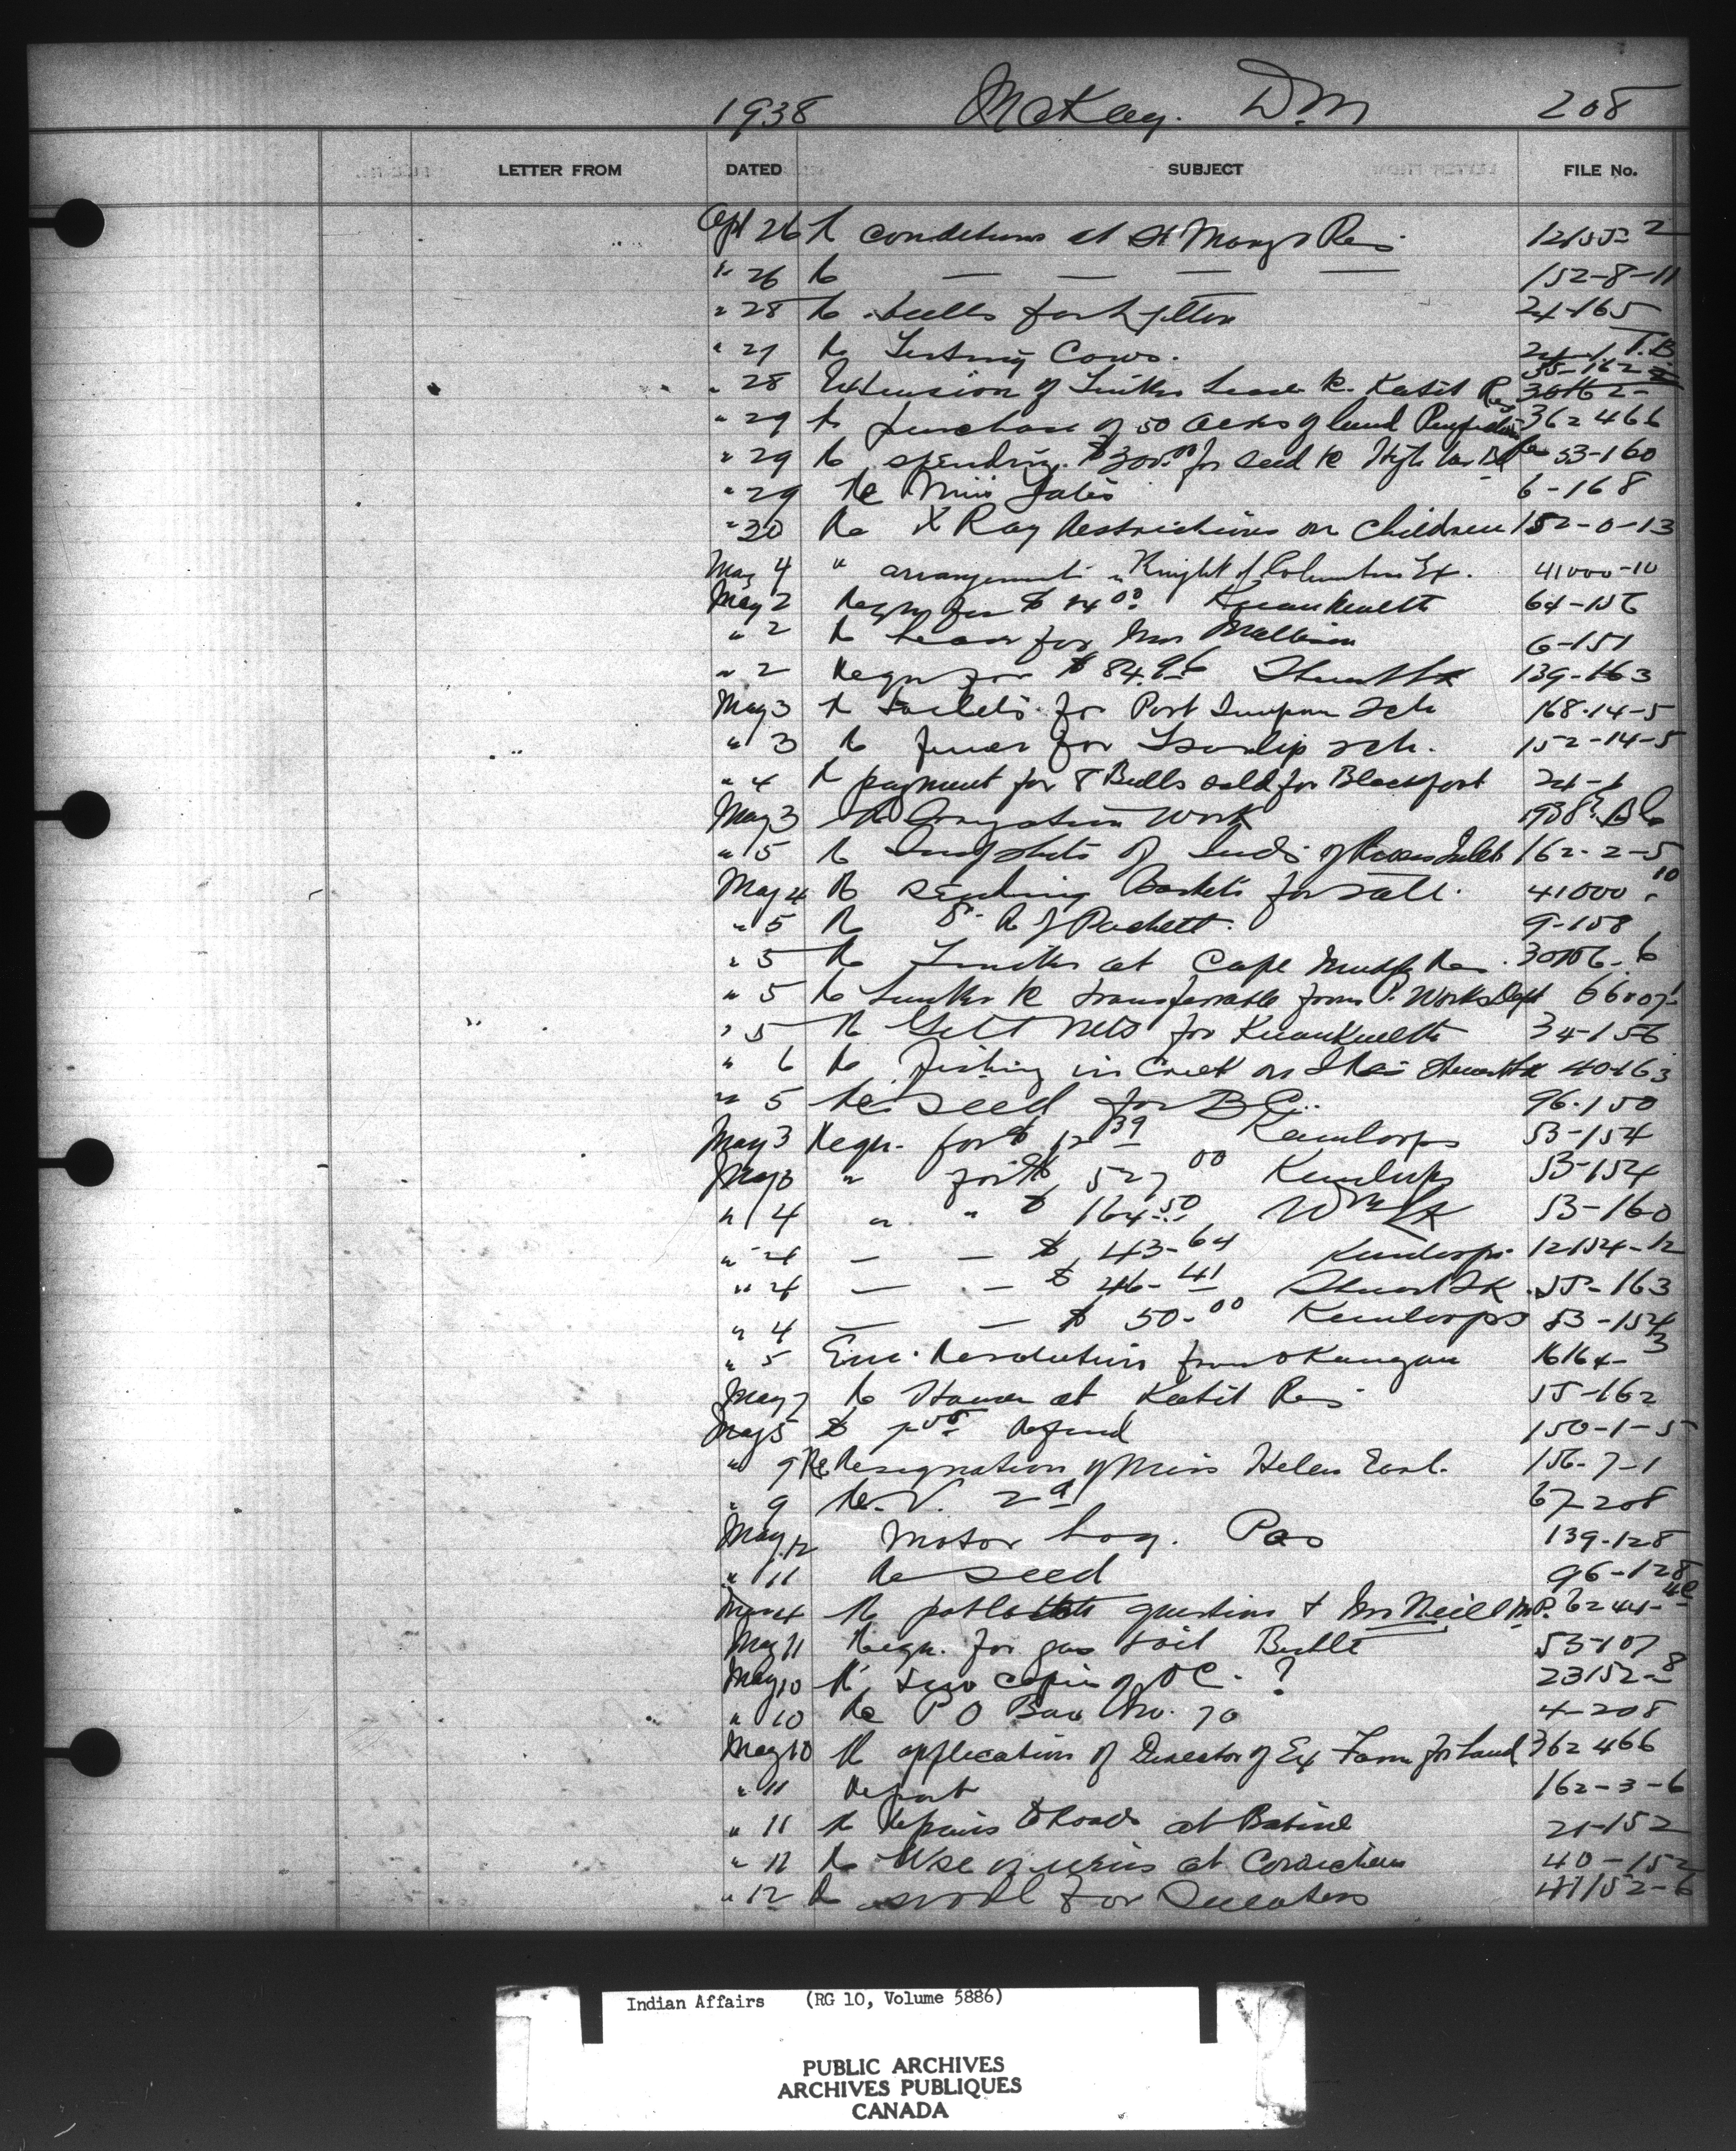 1938 McKay. D.M 208
LETTER FROM DATED SUBJECT FILE No.
Apl 26 Re conditions at St Marys Res. 12155-2
" 26 Re — — — — 152-8-11
" 28 Re bulls for Lytton 24-165
" 27 Re Testing Cows. T.B.
35-162-2
" 28 Extension of Timber Lease Re. Katit Res
" 29 Re purchase of 50 acres of land 362466
" 29 Re spending $300.00 for seed Re 53-160
" 29 Re Miss Yates 6-168
" 30 Re X Ray Restrictions on Children 152-0-13
May 4 " arrangements Knight of Columbus Ex. 41000-10
May 2 Reqn for $ 00 Kwawkewlth 64-156
" 2 Re lease for Mrs 6-151
" 2 Reqn for $ 84.96 Stuart Lk 139-163
May 3 Re Toilets for Port Simpson Sch 168-14-5
" 3 Re fence for Tsartlip sch. 152-14-5
" 4 Re payment for 8 Bulls sold for Blackfoot 24-1
May 3 Re Irrigation Work
" 5 Re Snapshots of Inds of Rivers Inlet 162-2-5
May 4 Re sending Baskets for sale. 41000-10
" 5 Re 9-158
" 5 Re Timber at Cape Mudge Res. 30156-6
" 5 Re transferrable from P. Works Dept
" 5 Re Gill Nets for Kwawkewlth 34-156
" 6 Re Fishing in Creek on Stuart Lk 40-163
" 5 Re seed for B.C. 96-150
May 3 Reqn. for $ 12.39 Kamloops 53-154
May 3 " for $ 527.00 Kamloops 53-154
" 4 " " $ 164.50 Wms Lk 53-160
" 4 — — $ 43.64 Kamloops 12154-12
" 4 — — $ 46.41 Stuart LK. 55-163
" 4 — — $ 50.00 Kamloops 53-154
" 5 Enc. Resolution from Okanagan 16164-3
May 7 Re House at Katit Res 55-162
May 5 $ Refund 150-1-5
" 9 Re Resignation of Miss Helen Earl. 156-7-1
" 9 Re. V. 29 67-208
May 12 Motor Log. Pas 139-128
" 11 Re seed 96-128
May 4 Re potlatch question & Mr Neill M.P. 6244-4C
May 11 Reqn. for gas & oil Birtle 53-107
May 10 Re two copies of O C. ? 23152-8
" 10 Re P O Box No. 70 4-208
May 10 Re application of Director of Ex Farm for Land 362466
" 11 Report 162-3-6
" 11 Re Repairs to Roads at Babine 21-152
" 11 Re Use of weirs at Cowichan 40-152
" 12 Re wool for Sweaters 41152-6
Indian Affairs (RG 10, Volume 5886)
PUBLIC ARCHIVES
ARCHIVES PUBLIQUES
CANADA